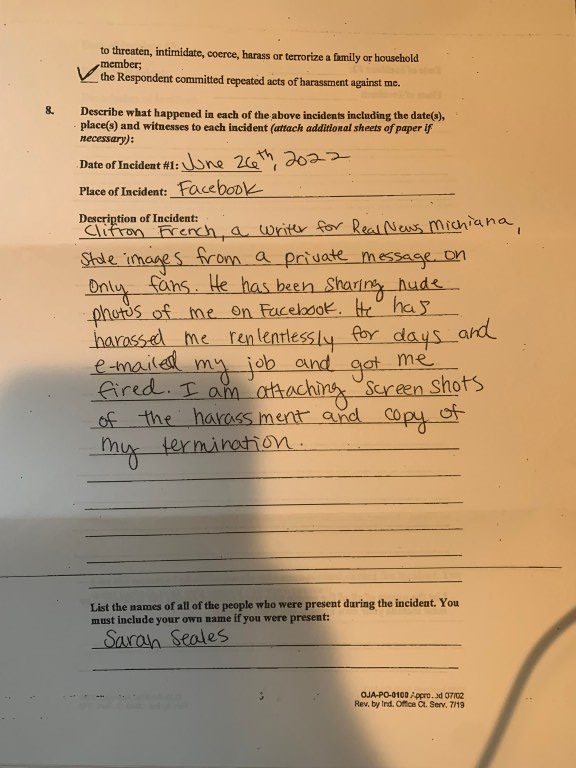 to threaten, intimidate, coerce, harass or terrorize a family or household
member;
the Respondent committed repeated acts of harassment against me.
8. Describe what happened in each of the above incidents including the date(s),
place(s) and witnesses to each incident (attach additional sheets of paper if
necessary):
Date of Incident #1: June 26th, 2022
Place of Incident: Facebook
Description of Incident:
Clifton French, a writer for Real News Michiana,
Stole images from a private message on
Only fans. He has been sharing nude
photos of me on Facebook. He has
harassed me renlentlessly for days and
e-mailed my job and got me
fired. I am attaching screen shots
of the harassment and copy of
my termination.
List the names of all of the people who were present during the incident. You
must include your own name if you were present:
Sarah Seales
OJA-PO-0100 07/02
Rev. by Ind. Office Ct. Serv. 7/19